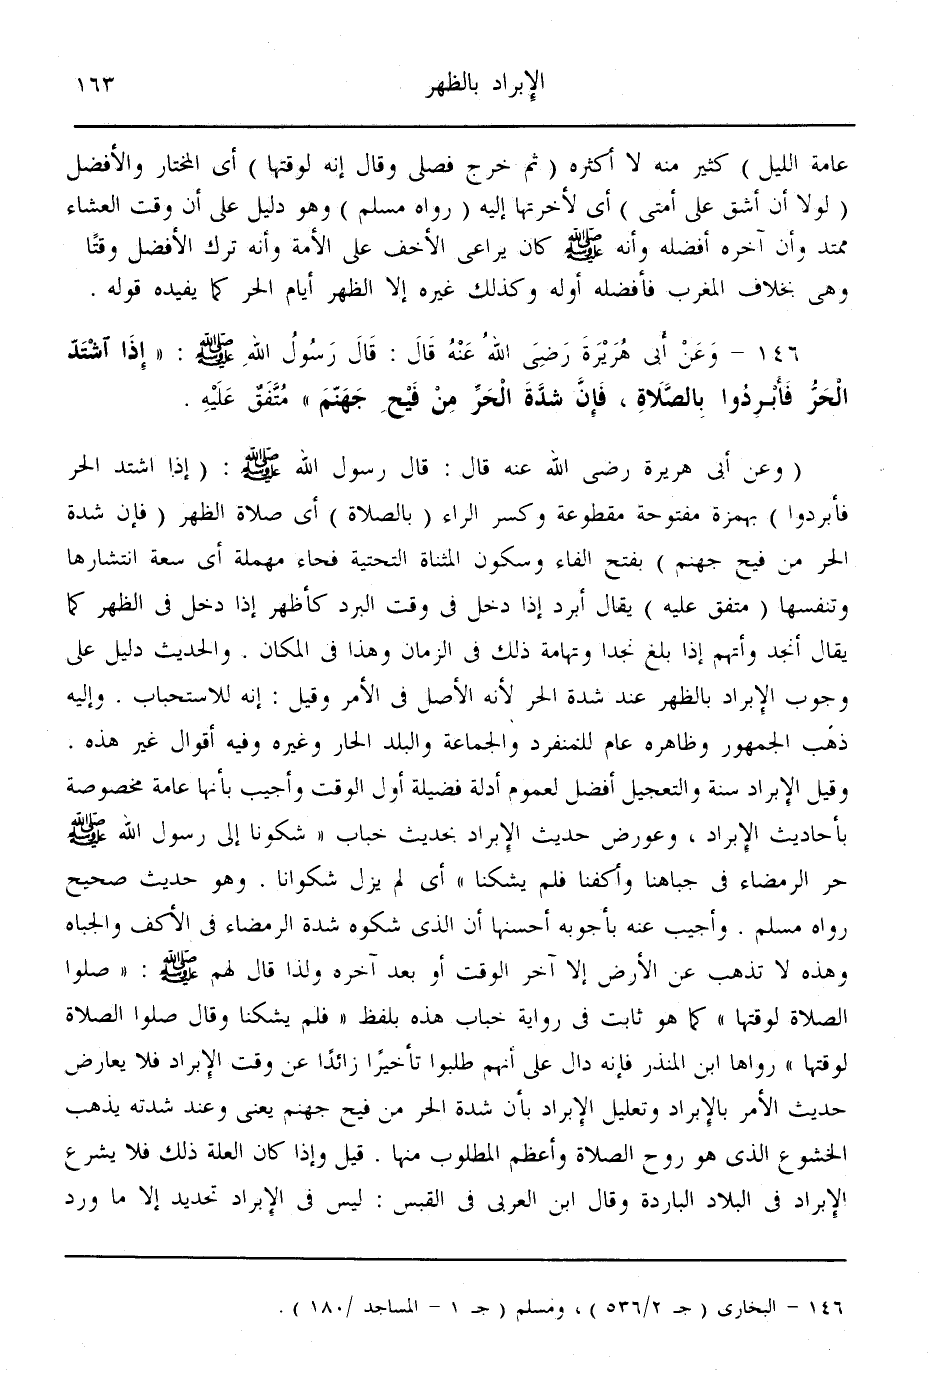 الإبراد بالظهر ١٦٣
عامة الليل ) كثير منه لا أكثره ( ثم خرج فصلى وقال إنه لوقتها ) أى المختار والأفضل
( لولا أن أشق على أمتى ) أى لأخرتها إليه ( رواه مسلم ) وهو دليل على أن وقت العشاء
ممتد وأن آخره أفضله وأنه ﷺ كان يراعى الأخف على الأمة وأنه ترك الأفضل وقتًا
وهى بخلاف المغرب فأفضله أوله وكذلك غيره إلا الظهر أيام الحر كما يفيده قوله .
١٤٦ – وَعَنْ أَبى هُرَيْرَةَ رَضِىَ اللهُ عَنْهُ قَالَ : قَالَ رَسُولُ اللهِ ﷺ : « إِذَا آشْتَدَّ
الْحَرُّ فَأَبْرِدُوا بِالصَّلَاةِ ، فَإِنَّ شدَّةَ الْحَرِّ مِنْ فَيْحِ جَهَنّمَ » مُتَّفَقٌ عَلَيْهِ .
( وعن أبى هريرة رضى الله عنه قال : قال رسول الله ﷺ : ( إذا اشتد الحر
فأبردوا ) بهمزة مفتوحة مقطوعة وكسر الراء ( بالصلاة ) أى صلاة الظهر ( فإن شدة
الحر من فيح جهنم ) بفتح الفاء وسكون المثناة التحتية فحاء مهملة أى سعة انتشارها
وتنفسها ( متفق عليه ) يقال أبرد إذا دخل فى وقت البرد كأظهر إذا دخل فى الظهر كما
يقال أنجد وأتهم إذا بلغ نجدا وتهامة ذلك فى الزمان وهذا فى المكان . والحديث دليل على
وجوب الإبراد بالظهر عند شدة الحر لأنه الأصل فى الأمر وقيل : إنه للاستحباب . وإليه
ذهب الجمهور وظاهره عام للمنفرد والجماعة والبلد الحار وغيره وفيه أقوال غير هذه .
وقيل الإبراد سنة والتعجيل أفضل لعموم أدلة فضيلة أول الوقت وأجيب بأنها عامة مخصوصة
بأحاديث الإبراد ، وعورض حديث الإبراد بحديث خباب « شكونا إلى رسول الله ﷺ
حر الرمضاء فى جباهنا وأكفنا فلم يشكنا » أى لم يزل شكوانا . وهو حديث صحيح
رواه مسلم . وأجيب عنه بأجوبه أحسنها أن الذى شكوه شدة الرمضاء فى الأكف والجباه
وهذه لا تذهب عن الأرض إلا آخر الوقت أو بعد آخره ولذا قال لهم ﷺ : « صلوا
الصلاة لوقتها » كما هو ثابت فى رواية خباب هذه بلفظ « فلم يشكنا وقال صلوا الصلاة
لوقتها » رواها ابن المنذر فإنه دال على أنهم طلبوا تأخيرًا زائدًا عن وقت الإبراد فلا يعارض
حديث الأمر بالإبراد وتعليل الإبراد بأن شدة الحر من فيح جهنم يعنى وعند شدته يذهب
الخشوع الذى هو روح الصلاة وأعظم المطلوب منها . قيل وإذا كان العلة ذلك فلا يشرع
الإبراد فى البلاد الباردة وقال ابن العربى فى القبس : ليس فى الإبراد تحديد إلا ما ورد
١٤٦ – البخارى ( جـ ٢/ ٥٣٦ ) ، ومسلم ( جـ ١ – المساجد / ١٨٠ ) .